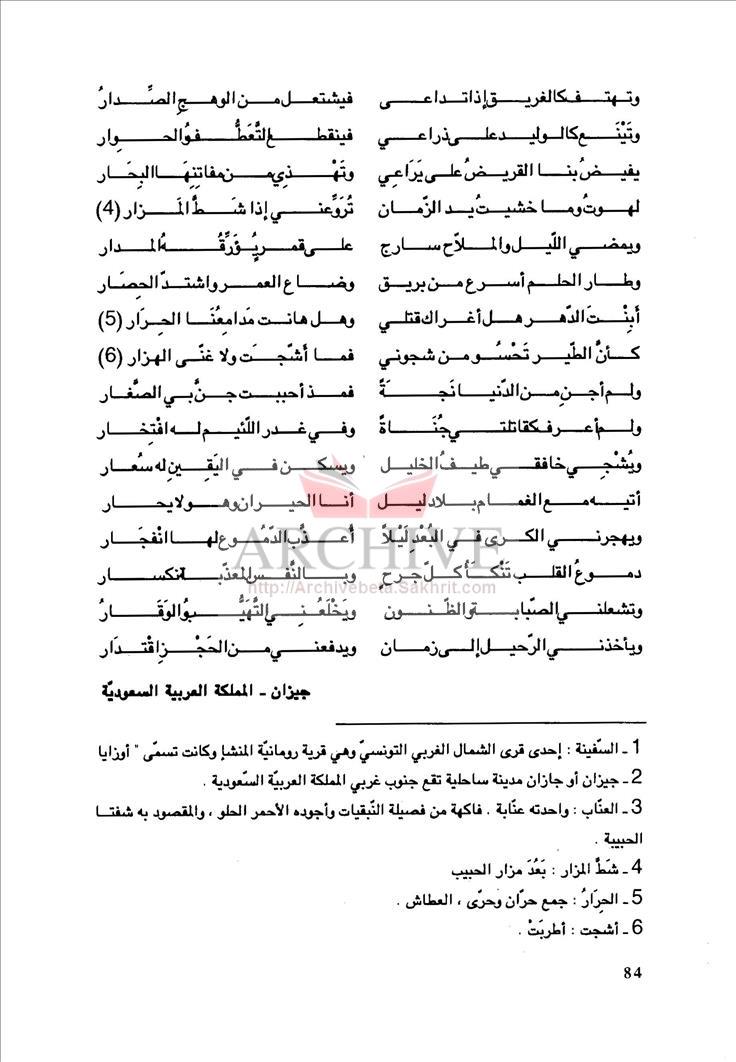 وتهتف كالغريق إذا تداعى فيشتعل من الوهج الصِّدارُ
وتَيْنَع كالوليد على ذراعي فينقطع التَّعَطُّف والحوار
يفيضُ بنا القريضُ على يَرَاعِي وتَهْذي من مفاتنِهَا البِحَار
لهوتُ وما خشيتُ يد الزّمان تُرَوِّعني إذا شَطَّ المَزار (4)
ويمضي اللّيل والملاّح سارج على قمر يُؤَرِّقُهُ المدار
وطار الحلم أسرع من بريق وضاع العمر واشتدّ الحصَار
أبِنْتَ الدّهر هل أغراك قتلي وهل هانت مَدامعُنَا الحِرَار (5)
كأنَّ الطّير تَحْسُو من شجوني فما أشّجَت ولا غنّى الهزار (6)
ولم أجنِ من الدّنيا نَجَةً فمذ أحببت جنَّ بي الصّغار
ولم أعرف كقاتلتي جُنَاةً وفي غدر اللّئيم له افْتِخار
ويُشْجِي خافقي طيفُ الخليل ويسكن في اليَقِينِ له سُعار
أتيه مع الغمام بلا دليل أنا الحيران وهو لا يحار
ويهجرني الكرى في البُعْدِ لَيْلاً أُعذِّبُ الدّمُوع لها انْفجَار
دموعُ القلب تَنْكَأُ كلّ جرحٍ وبالنَّفس المعذّبة انكسار
وتشعلني الصّبابة والظّنون ويَخْلَعُني التُّهَيُّب والوَقَارُ
ويأخذني الرّحيل إلى زمان ويدفعني من الحَجْزِ اقْتدَار
جيزان - المملكة العربية السعوديّة
1 - السّفينة : إحدى قرى الشمال الغربي التونسيّ وهي قرية رومانيّة المنشإ وكانت تسمّى " أوزايا
2 - جيزان أو جازان مدينة ساحلية تقع جنوب غربي المملكة العربيّة السّعودية .
3 - العنّاب : واحدته عنّابة . فاكهة من فصيلة النّبقيات وأجوده الأحمر الحلو ، والمقصود به شفتا
الحبيبة .
4 - شَطَّ المزار : بَعُدَ مزار الحبيب
5 - الحِرَارُ : جمع حرّان وحرّى ، العطاش .
6 - أشجت : أطربَتْ .
84
ARCHIVE
http://Archivebeta.Sakhrit.com